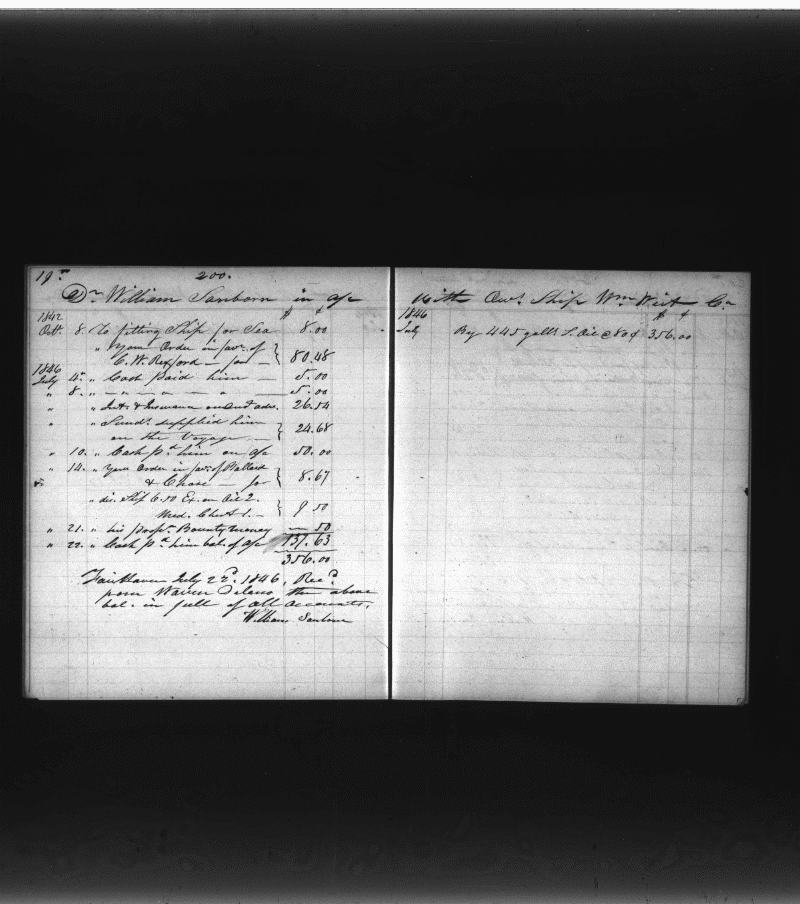 19th 200.
Dr William Sanborn in a/c
$ ¢
1842
Oct. 8. To fitting Ship for Sea 8.00
" Your Order in fav. of
C. W. Rexford — for — } 80.48
1846
July 4. " Cash paid him — 5.00
" 8. " — " — " — 5.00
" " Int. & Insurance on out adv. 26.54
" " Sund. supplied him
on the Voyage — } 24.68
" 10. " Cash pd. him on a/c 50.00
" 14. " Your Order in fav. of Ballard
& Chase — for } 8.67
" dis. Ship 6.50 Ex. on Oil 2.
Med. Chest 1. — } 9 50
" 21. " his prop. Bounty money — 50
" 22. " Cash pd. him bal. of a/c 137.63
356.00
Fairhaven July 22d. 1846, Recd.
from Warren Delano, the above
bal. in full of all accounts,
William Sanborn
With Own. Ship Wm Wirt Cr
1846 $ ¢
July By 445 galls S. Oil @ 80¢ 356.00